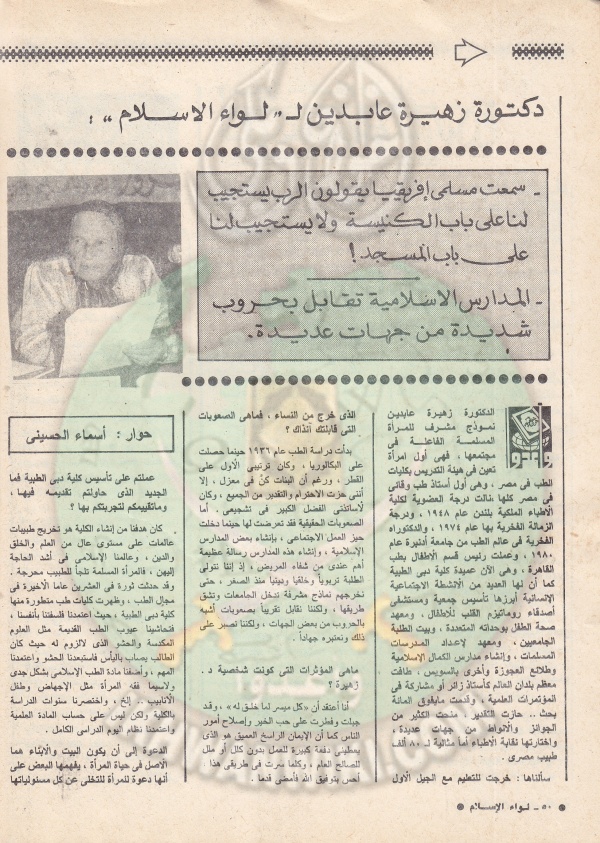 دكتورة زهيرة عابدين لـ «لواء الاسلام» :
ـ سمعت مسلمى إفريقيا يقولون الرب يستجيب
لنا على باب الكنيسة ولا يستجيب لنا
على باب المسجد !
ـ المدارس الاسلامية تقابل بحروب
شديدة من جهات عديدة .
حوار : أسماء الحسينى
الدكتورة زهيرة عابدين
نموذج مشرف للمرأة
المسلمة الفاعلة فى
مجتمعها ، فهى أول امرأة
تعين فى هيئة التدريس بكليات
الطب فى مصر ، وهى أول أستاذ طب وقائى
فى مصر كلها ، نالت درجة العضوية لكلية
الأطباء الملكية بلندن عام ١٩٤٨ ، ودرجة
الزمالة الفخرية بها عام ١٩٧٤ ، والدكتوراه
الفخرية فى عالم الطب من جامعة أدنبرة عام
١٩٨٠ ، وعملت رئيس قسم الأطفال بطب
القاهرة ، وهى الآن عميدة كلية دبى الطبية
كما أن لها العديد من الأنشطة الاجتماعية
الإنسانية أبرزها تأسيس جمعية ومستشفى
أصدقاء روماتيزم القلب للأطفال ، ومعهد
صحة الطفل بوحداته المتعددة ، وبيت الطلبة
الجامعيين ، ومعهد لإعداد المدرسات
المسلمات ، وإنشاء مدارس الكمال الإسلامية
وطلائع العجوزة وأخرى بالسويس ، طافت
معظم بلدان العالم كأستاذ زائر أو مشاركة فى
المؤتمرات العلمية ، وقدمت مايفوق المائة
بحث .. حازت التقدير ، منحت الكثير من
الجوائز والأنواط من جهات عديدة ،
واختارتها نقابة الأطباء أماً مثالية لـ ٨٠ ألف
طبيب مصرى .
سألناها : خرجت للتعليم مع الجيل الأول
الذى خرج من النساء ، فماهى الصعوبات
التى قابلتك آنذاك ؟
بدأت دراسة الطب عام ١٩٣٦ حينما حصلت
على البكالوريا ، وكان ترتيبى الأول على
القطر ، ورغم أن البنات كنَّ فى معزل ، إلا
أننى حزت الاحترام والتقدير من الجميع ، وكان
لأساتذتى الفضل الكبير فى تشجيعى . أما
الصعوبات الحقيقية فقد تعرضت لها حينما دخلت
حيز العمل الاجتماعى ، بإنشاء بعض المدارس
الإسلامية ، وإنشاء هذه المدارس رسالة عظيمة
أهم عندى من شفاء المريض ، إذ إننا نتولى
الطلبة تربوياً وخلقياً ودينياً منذ الصغر ، حتى
نخرجهم نماذج مشرفة تدخل الجامعات وتشق
طريقها ، ولكننا نقابل تقريباً بصعوبات أشبه
بالحروب من بعض الجهات ، ولكننا نصبر على
ذلك ونعتبره جهاداً .
ماهى المؤثرات التى كونت شخصية د.
زهيرة ؟
أنا أعتقد أن « كل ميسر لما خلق له » ، وقد
جبلت وفطرت على حب الخير وإصلاح أمور
الناس كما أن الإيمان الراسخ العميق هو الذى
يعطينى دفعة كبيرة للعمل بدون كلل أو ملل
للصالح العام ، وكلما سرت فى طريقى هذا
أحس بتوفيق الله فأمضى قدماً .
عملتم على تأسيس كلية دبى الطبية فما
الجديد الذى حاولتم تقديمه فيها ،
وماتقييمكم لتجربتكم بها ؟
كان هدفنا من إنشاء الكلية هو تخريج طبيبات
عالمات على مستوى عال من العلم والخلق
والدين ، وعالمنا الإسلامى فى أشد الحاجة
إليهن ، فالمرأة المسلمة تلجأ للطبيب محرجة .
وقد حدثت ثورة فى العشرين عاما الأخيرة فى
مجال الطب ، وظهرت كليات طب متطورة منها
كلية دبى الطبية ، حيث اعتمدنا فلسفتنا بأنفسنا ،
فتحاشينا عيوب الطب القديمة مثل العلوم
المكدسة والحشو الذى لالزوم له حيث كان
الطالب يصاب باليأس فاستبعدنا الحشو واعتمدنا
المهم ، وأضفنا مادة الطب الإسلامى بشكل جدى
ولاسيما فقه المرأة مثل الإجهاض وطفل
الأنابيب .. إلخ ، واختصرنا سنوات الدراسة
بالكلية ولكن ليس على حساب المادة العلمية
واعتمدنا نظام اليوم الدراسى الكامل .
الدعوة إلى أن يكون البيت والأبناء هما
الأصل فى حياة المرأة ، يفهمها البعض على
أنها دعوة للمرأة للتخلى عن كل مسئولياتها
٥٠ ـ لواء الإسلام